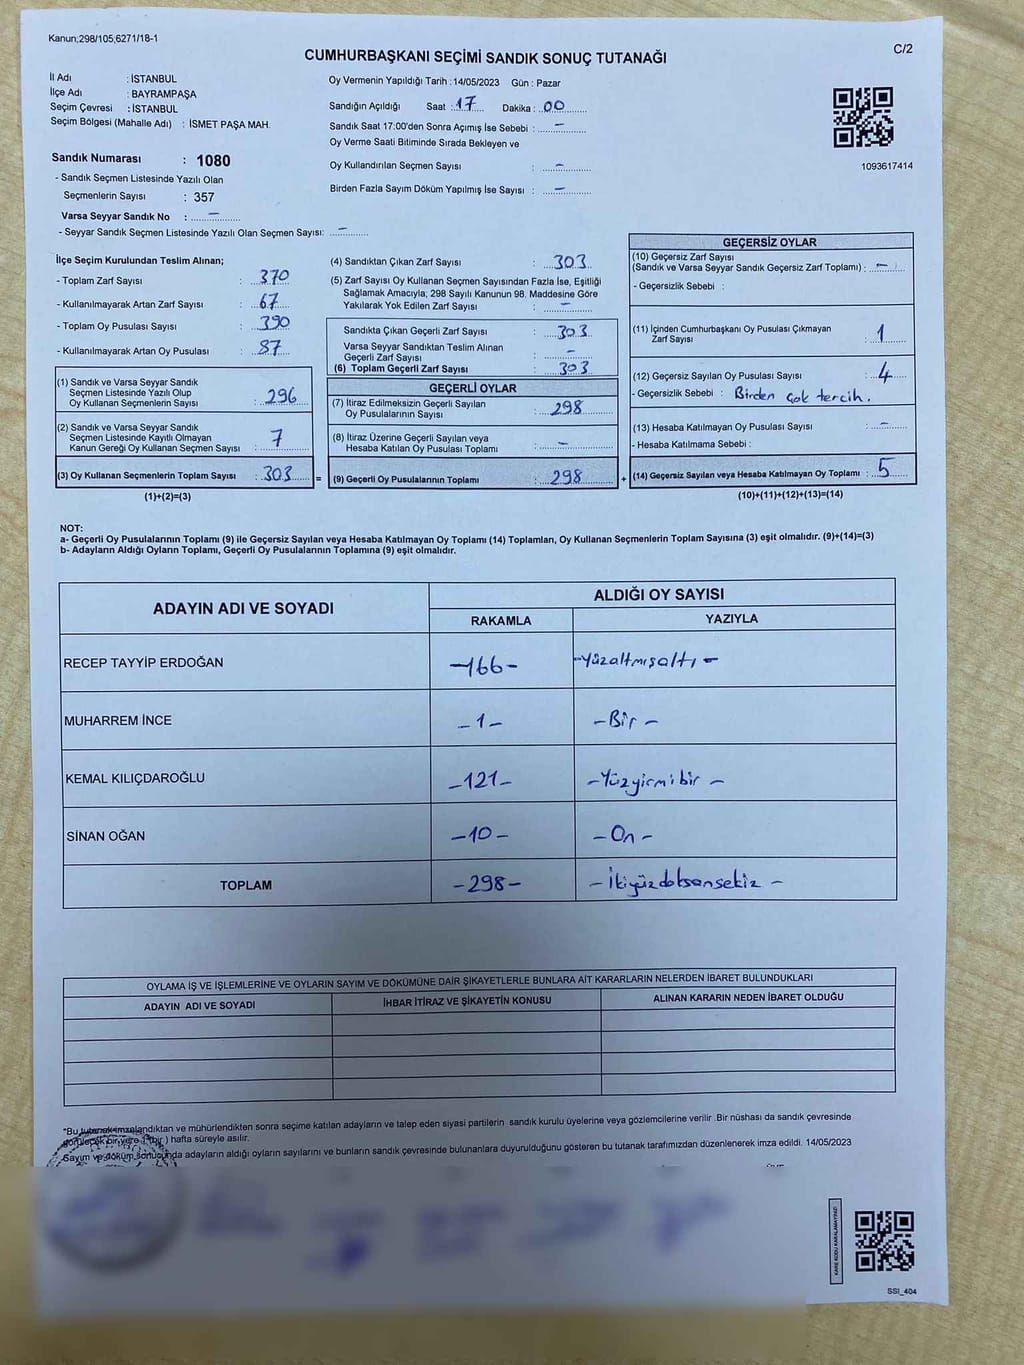 Kanun;298/105,6271/18-1
C/2
CUMHURBAŞKANI SEÇİMİ SANDIK SONUÇ TUTANAĞI
İl Adı : İSTANBUL
İlçe Adı : BAYRAMPAŞA
Seçim Çevresi : İSTANBUL
Seçim Bölgesi (Mahalle Adı) : İSMET PAŞA MAH.
Sandık Numarası : 1080
- Sandık Seçmen Listesinde Yazılı Olan
Seçmenlerin Sayısı : 357
Varsa Seyyar Sandık No : –
- Seyyar Sandık Seçmen Listesinde Yazılı Olan Seçmen Sayısı: –
Oy Vermenin Yapıldığı Tarih : 14/05/2023 Gün : Pazar
Sandığın Açıldığı Saat : 17 Dakika : 00
Sandık Saat 17:00'den Sonra Açımış İse Sebebi : –
Oy Verme Saati Bitiminde Sırada Bekleyen ve
Oy Kullandırılan Seçmen Sayısı : –
Birden Fazla Sayım Döküm Yapılmış İse Sayısı : –
1093617414
İlçe Seçim Kurulundan Teslim Alınan;
- Toplam Zarf Sayısı : 370
- Kullanılmayarak Artan Zarf Sayısı : 67
- Toplam Oy Pusulası Sayısı : 390
- Kullanılmayarak Artan Oy Pusulası : 87
(1) Sandık ve Varsa Seyyar Sandık
Seçmen Listesinde Yazılı Olup
Oy Kullanan Seçmenlerin Sayısı : 296
(2) Sandık ve Varsa Seyyar Sandık
Seçmen Listesinde Kayıtlı Olmayan
Kanun Gereği Oy Kullanan Seçmen Sayısı : 7
(3) Oy Kullanan Seçmenlerin Toplam Sayısı : 303 =
(1)+(2)=(3)
(4) Sandıktan Çıkan Zarf Sayısı : 303
(5) Zarf Sayısı Oy Kullanan Seçmen Sayısından Fazla İse, Eşitliği
Sağlamak Amacıyla; 298 Sayılı Kanunun 98. Maddesine Göre
Yakılarak Yok Edilen Zarf Sayısı : –
Sandıkta Çıkan Geçerli Zarf Sayısı : 303
Varsa Seyyar Sandıktan Teslim Alınan
Geçerli Zarf Sayısı : –
(6) Toplam Geçerli Zarf Sayısı : 303
GEÇERLİ OYLAR
(7) İtiraz Edilmeksizin Geçerli Sayılan
Oy Pusulalarının Sayısı : 298
(8) İtiraz Üzerine Geçerli Sayılan veya
Hesaba Katılan Oy Pusulası Toplamı : –
(9) Geçerli Oy Pusulalarının Toplamı : 298 +
GEÇERSİZ OYLAR
(10) Geçersiz Zarf Sayısı
(Sandık ve Varsa Seyyar Sandık Geçersiz Zarf Toplamı) : –
- Geçersizlik Sebebi :
(11) İçinden Cumhurbaşkanı Oy Pusulası Çıkmayan
Zarf Sayısı : 1
(12) Geçersiz Sayılan Oy Pusulası Sayısı : 4
- Geçersizlik Sebebi : Birden çok tercih.
(13) Hesaba Katılmayan Oy Pusulası Sayısı : –
- Hesaba Katılmama Sebebi :
(14) Geçersiz Sayılan veya Hesaba Katılmayan Oy Toplamı : 5
(10)+(11)+(12)+(13)=(14)
NOT:
a- Geçerli Oy Pusulalarının Toplamı (9) ile Geçersiz Sayılan veya Hesaba Katılmayan Oy Toplamı (14) Toplamları, Oy Kullanan Seçmenlerin Toplam Sayısına (3) eşit olmalıdır. (9)+(14)=(3)
b- Adayların Aldığı Oyların Toplamı, Geçerli Oy Pusulalarının Toplamına (9) eşit olmalıdır.
ADAYIN ADI VE SOYADI
ALDIĞI OY SAYISI
RAKAMLA YAZIYLA
RECEP TAYYİP ERDOĞAN –166– –Yüzaltmışaltı–
MUHARREM İNCE –1– –Bir–
KEMAL KILIÇDAROĞLU –121– –Yüzyirmibir–
SİNAN OĞAN –10– –On–
TOPLAM –298– –İkiyüzdoksansekiz–
OYLAMA İŞ VE İŞLEMLERİNE VE OYLARIN SAYIM VE DÖKÜMÜNE DAİR ŞİKAYETLERLE BUNLARA AİT KARARLARIN NELERDEN İBARET BULUNDUKLARI
ADAYIN ADI VE SOYADI İHBAR İTİRAZ VE ŞİKAYETİN KONUSU ALINAN KARARIN NEDEN İBARET OLDUĞU
*Bu tutanak imzalandıktan ve mühürlendikten sonra seçime katılan adayların ve talep eden siyasi partilerin sandık kurulu üyelerine veya gözlemcilerine verilir. Bir nüshası da sandık çevresinde
görülecek bir yere 1 (bir ) hafta süreyle asılır.
Sayım ve döküm sonucunda adayların aldığı oyların sayılarını ve bunların sandık çevresinde bulunanlara duyurulduğunu gösteren bu tutanak tarafımızdan düzenlenerek imza edildi. 14/05/2023
KARE KODU KARALAMAYINIZ!
SSI_404